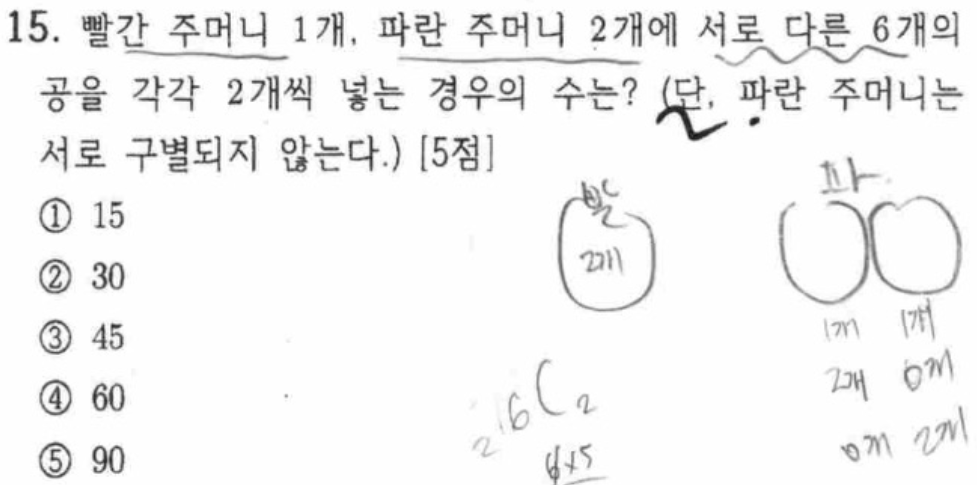 15. 빨간 주머니 1개, 파란 주머니 2개에 서로 다른 6개의
공을 각각 2개씩 넣는 경우의 수는? (단, 파란 주머니는
서로 구별되지 않는다.) [5점]
① 15
② 30
③ 45
④ 60
⑤ 90
빨
2개
파
1개 1개
2개 0개
0개 2개
6C2
6×5